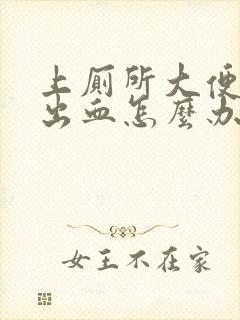 上厠所大便
出血怎麼办
女王不在家